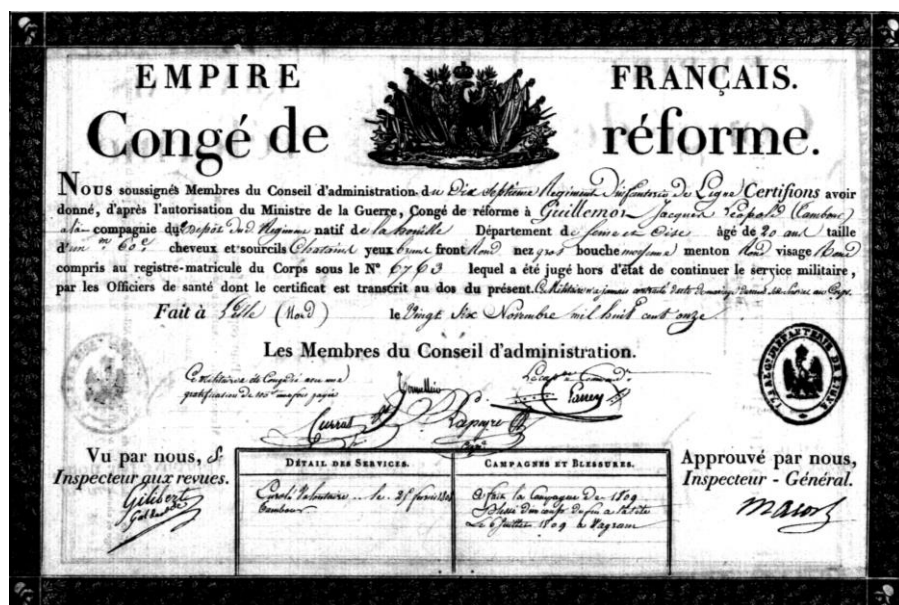 EMPIRE FRANÇAIS.
Congé de réforme.
Nous soussignés Membres du Conseil d'administration du Dix Septième Régiment D'infanterie De Ligne Certifions avoir
donné, d'après l'autorisation du Ministre de la Guerre, Congé de réforme à Guillemot Jacques Léopold (Tambour)
à la compagnie du Dépôt dud. Régiment natif de la bouille Département de Seine âgé de 20 ans taille
d'un m. 60 c cheveux et sourcils Chatains yeux bruns front Rond nez gros bouche moyenne menton Rond visage Rond
compris au registre-matricule du Corps sous le N° 6763 lequel a été jugé hors d'état de continuer le service militaire,
par les Officiers de santé dont le certificat est transcrit au dos du présent. Ce Militaire n'a jamais contracté d'acte de mariage au Corps.
Fait à Lille (Nord) le Vingt Six Novembre mil huit cent onze
Les Membres du Conseil d'administration.
Ce militaire été Congédié avec une
gratification de une fois payée
Vu par nous, S.
Inspecteur aux revues.
Gilibert
DÉTAIL DES SERVICES.
Enrolé Volontaire le
Tambour
CAMPAGNES ET BLESSURES.
A fait la Campagne de 1809
Blessé d'un coup de feu à la tête
Le 6 Juillet 1809 à Wagram
Approuvé par nous,
Inspecteur - Général.